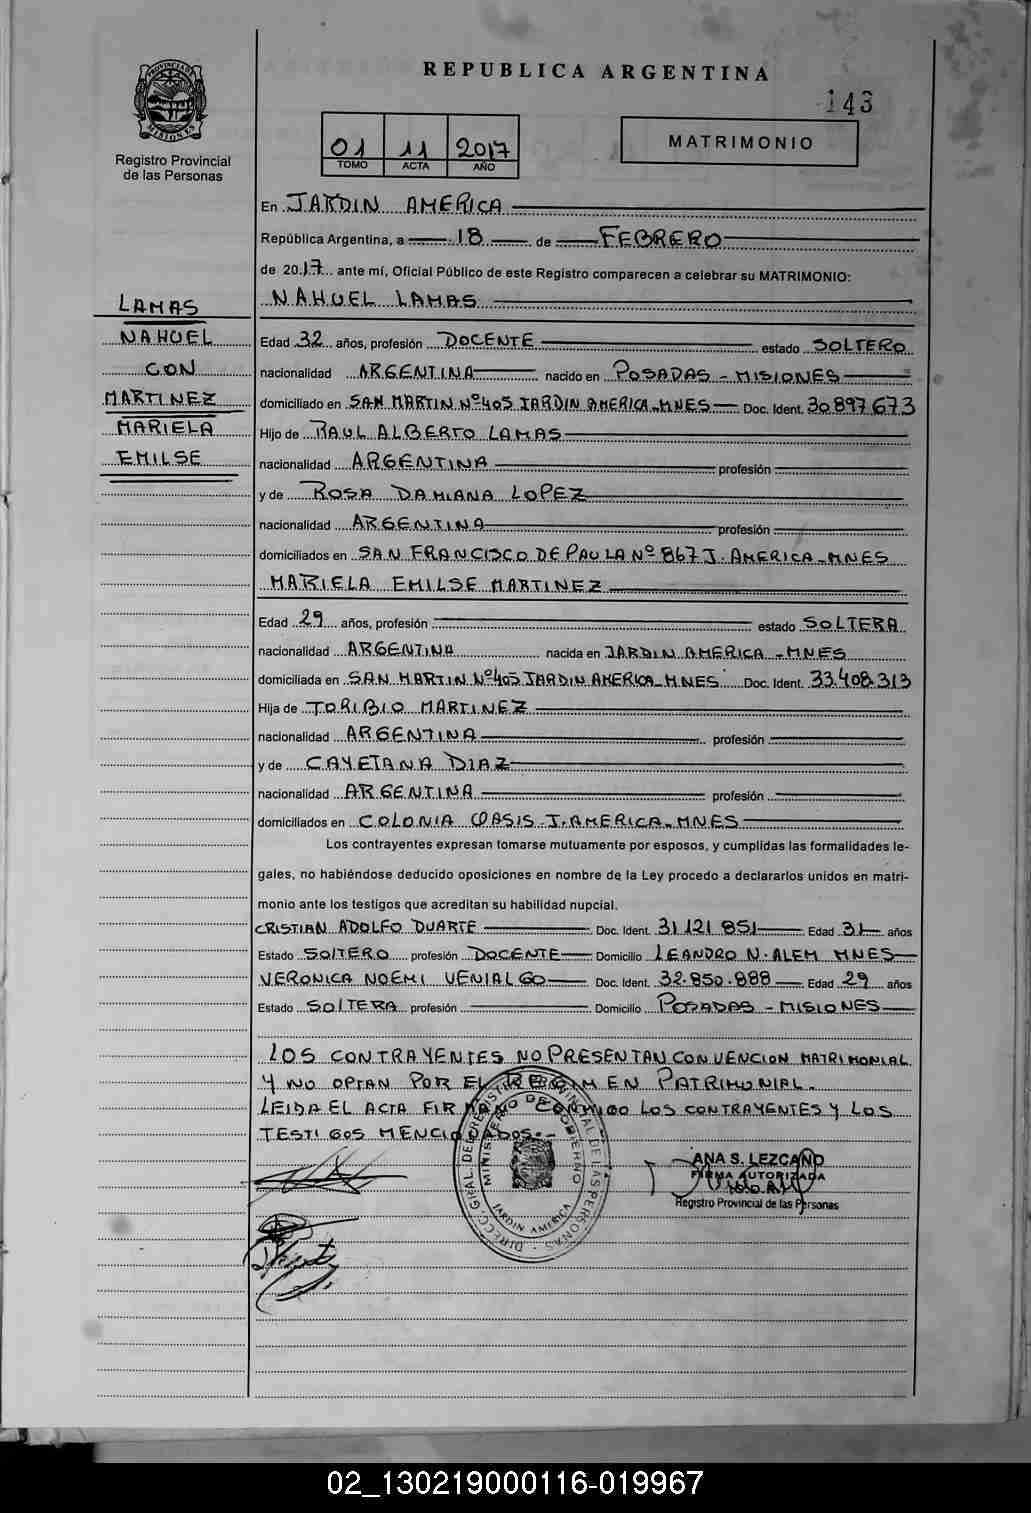 REPUBLICA ARGENTINA
143
PROVINCIA DE
MISIONES
Registro Provincial
de las Personas
01 11 2017
TOMO ACTA AÑO
MATRIMONIO
En JARDIN AMERICA
República Argentina, a 18 de FEBRERO
de 2017 ante mí, Oficial Público de este Registro comparecen a celebrar su MATRIMONIO:
NAHUEL LAMAS
LAMAS
NAHUEL
CON
MARTINEZ
MARIELA
EMILSE
Edad 32 años, profesión DOCENTE estado SOLTERO
nacionalidad ARGENTINA nacido en POSADAS - MISIONES
domiciliado en SAN MARTIN Nº405 JARDIN AMERICA-MNES Doc. Ident. 30897673
Hijo de RAUL ALBERTO LAMAS
nacionalidad ARGENTINA profesión
y de ROSA DAMIANA LOPEZ
nacionalidad ARGENTINA profesión
domiciliados en SAN FRANCISCO DE PAULA Nº 867 J. AMERICA-MNES
MARIELA EMILSE MARTINEZ
Edad 29 años, profesión estado SOLTERA
nacionalidad ARGENTINA nacida en JARDIN AMERICA - MNES
domiciliada en SAN MARTIN Nº405 JARDIN AMERICA-MNES Doc. Ident. 33.408.313
Hija de TORIBIO MARTINEZ
nacionalidad ARGENTINA profesión
y de CAYETANA DIAZ
nacionalidad ARGENTINA profesión
domiciliados en COLONIA OASIS - J. AMERICA-MNES
Los contrayentes expresan tomarse mutuamente por esposos, y cumplidas las formalidades le-
gales, no habiéndose deducido oposiciones en nombre de la Ley procedo a declararlos unidos en matri-
monio ante los testigos que acreditan su habilidad nupcial.
CRISTIAN ADOLFO DUARTE Doc. Ident. 31 121 851 Edad 31 años
Estado SOLTERO profesión DOCENTE Domicilio LEANDRO N. ALEM MNES
VERONICA NOEMI VENIALGO Doc. Ident. 32.850.888 Edad 29 años
Estado SOLTERA profesión Domicilio POSADAS - MISIONES
LOS CONTRAYENTES NO PRESENTAN CONVENCION MATRIMONIAL
Y NO OPTAN POR EL REGIMEN PATRIMONIAL.
LEIDA EL ACTA FIRMAN CONMIGO LOS CONTRAYENTES Y LOS
TESTIGOS MENCIONADOS.-
DIREC. GRAL. DEL REGISTRO PROVINCIAL DE LAS PERSONAS
MINISTERIO DE GOBIERNO
JARDIN AMERICA
ANA S. LEZCANO
FIRMA AUTORIZADA
Registro Provincial de las Personas
02_130219000116-019967